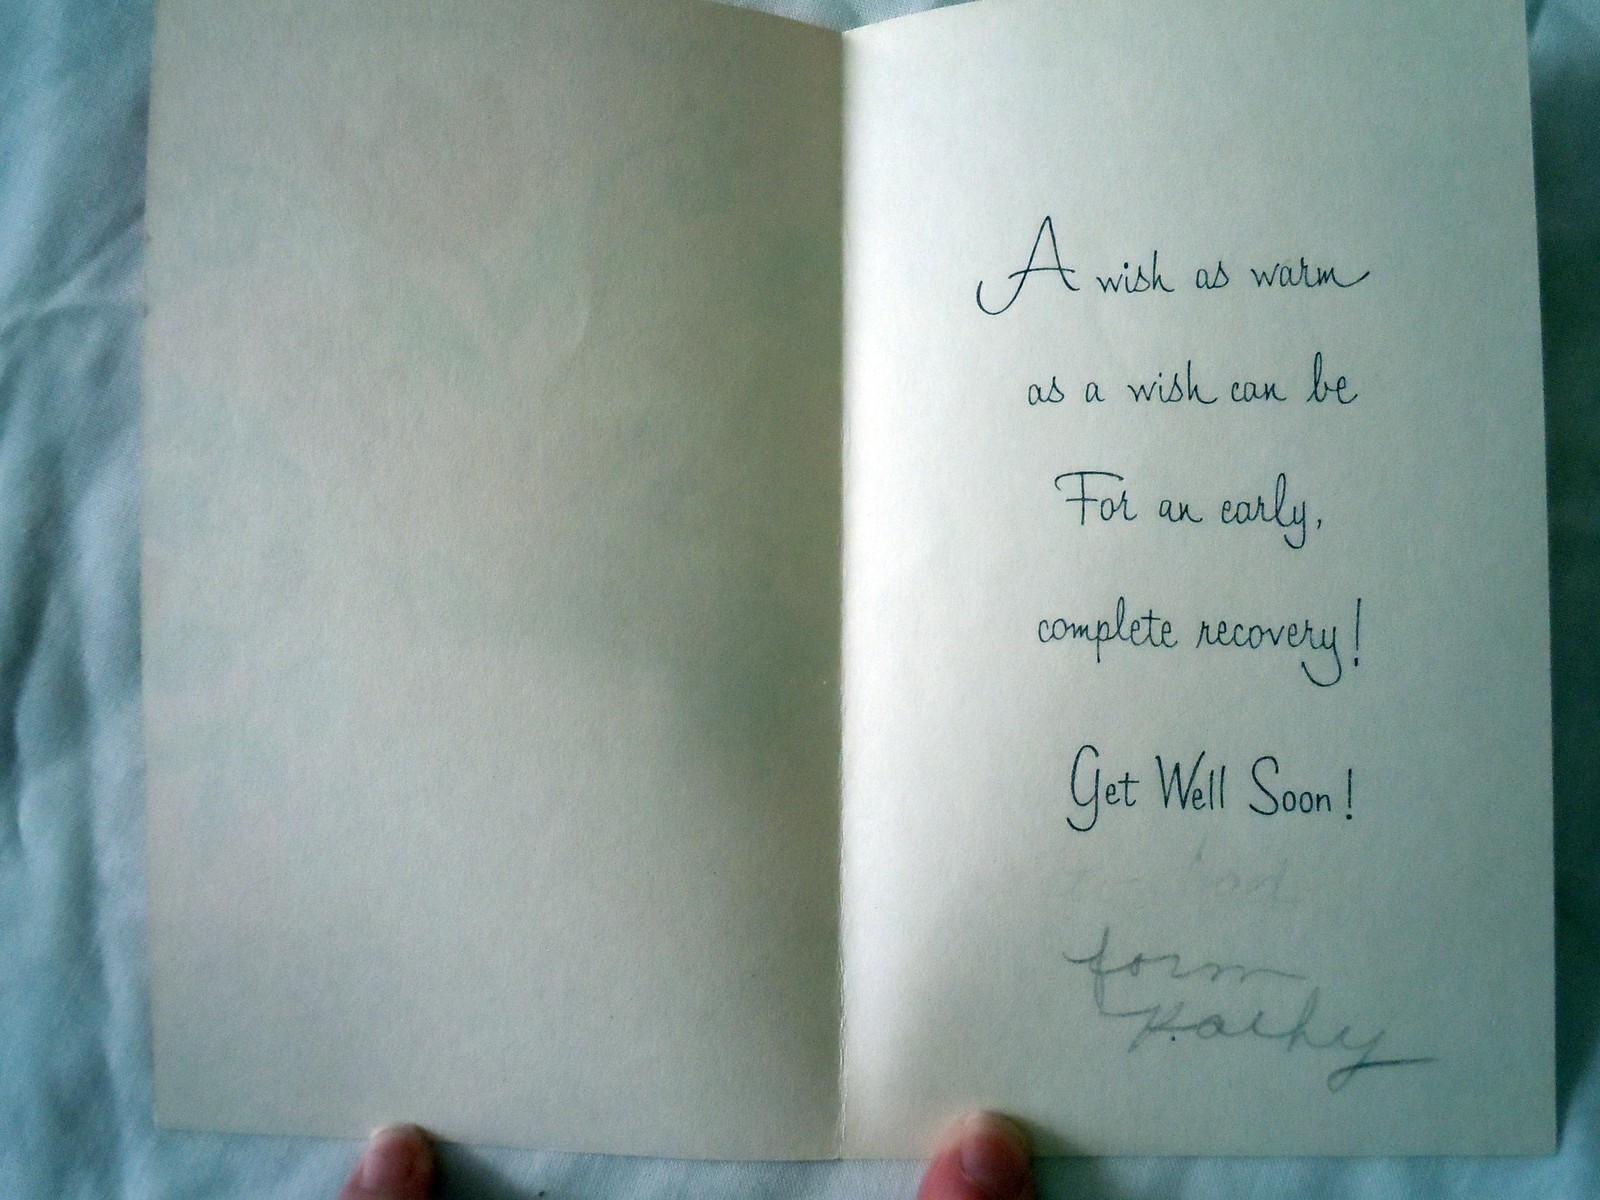 A wish as warm
as a wish can be
For an early,
complete recovery!
Get Well Soon!
form
Kathy